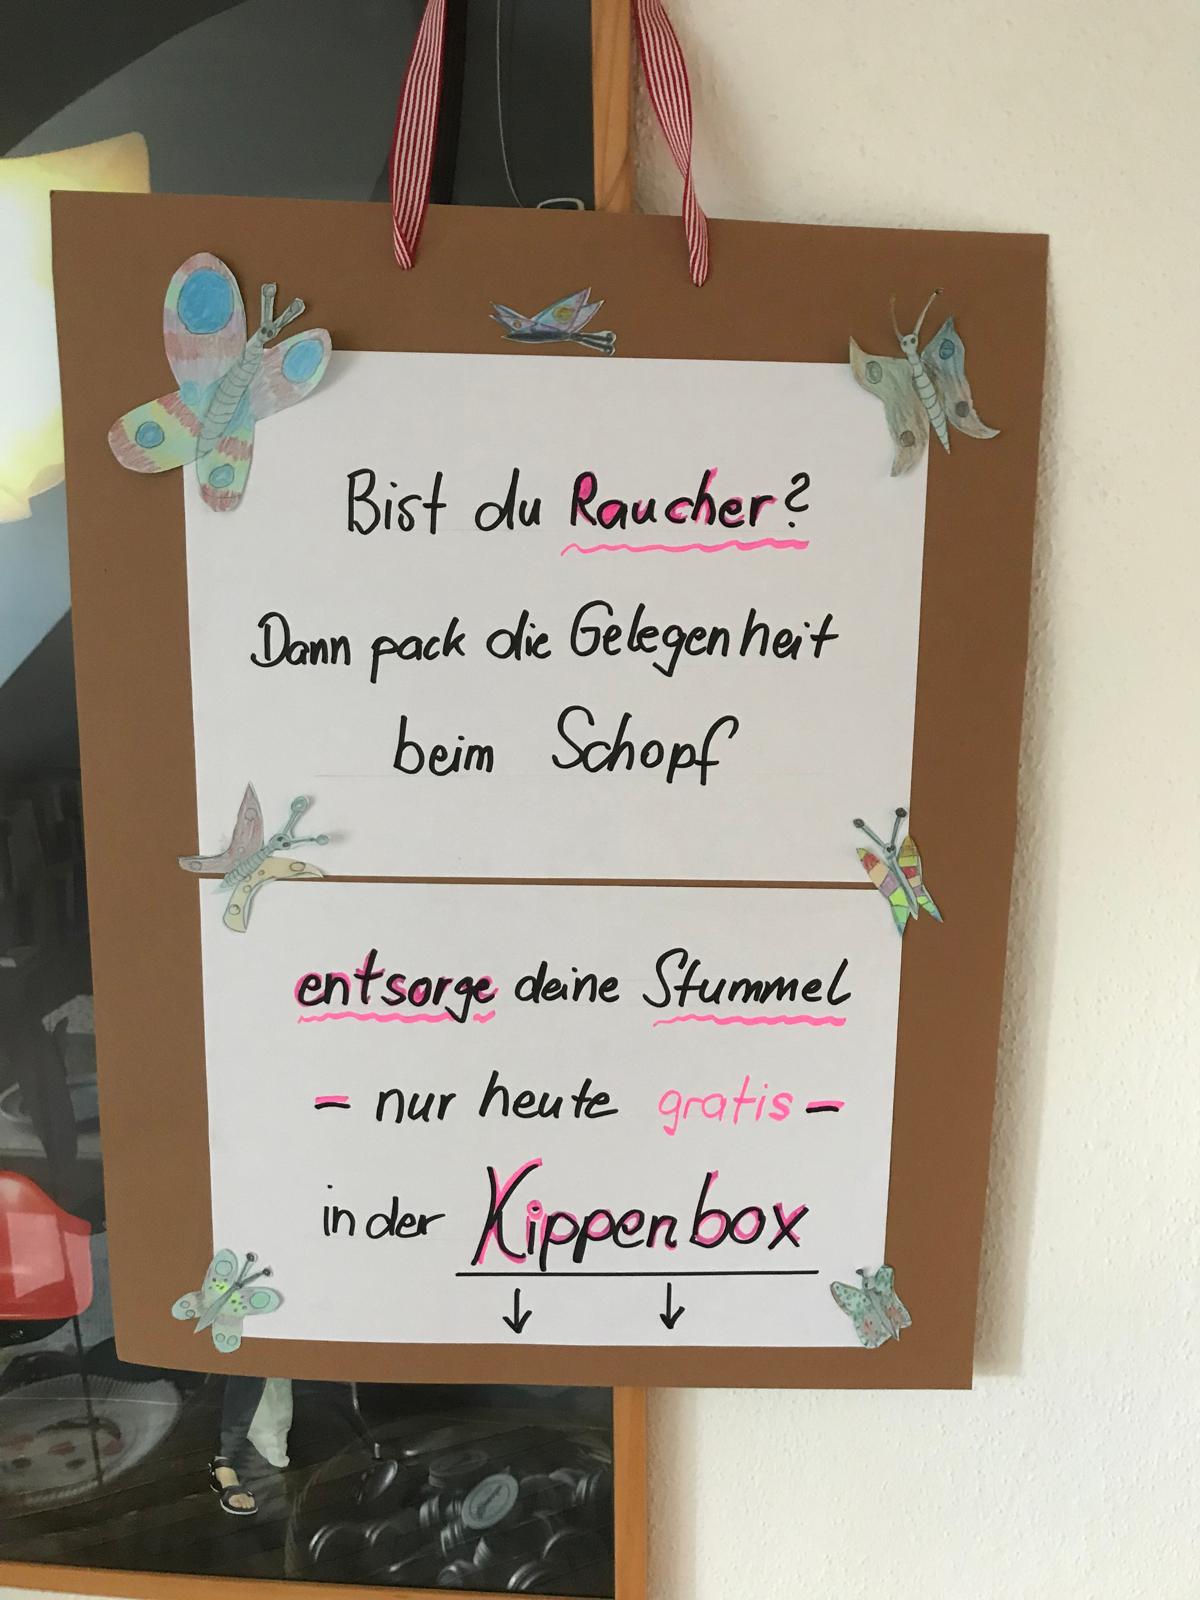 Bist du Raucher?
Dann pack die Gelegenheit
beim Schopf
entsorge deine Stummel
- nur heute gratis -
in der Kippenbox
↓ ↓